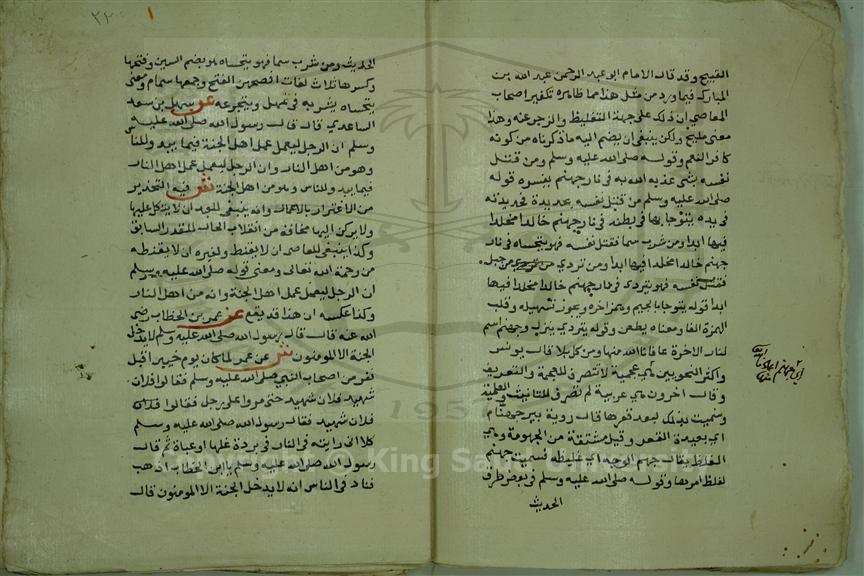 القبيح وقد قال الامام ابو عبد الرحمن عبد الله بن
المبارك فيما ورد من مثل هذا مما ظاهره تكفير اصحاب
المعاصي ان ذلك على جهة التغليظ والزجر عنه وهذا
معنى مليح ولكن ينبغي ان يضم اليه ما ذكرناه من كونه
كافر النعم وقوله صلى الله عليه وسلم ومن قتل
نفسه بشى عذبه الله به في نار جهنم يفسره قوله
صلى الله عليه وسلم من قتل نفسه بحديدة فحديدته
في يده يتوجا بها في بطنه في نار جهنم خالدا مخلدا
فيها ابدا ومن شرب سما فقتل نفسه فهو يتحساه في نار
جهنم خالدا مخلدا فيها ابدا ومن تردي من جبل
فقتل نفسه فهو يتردي في نار جهنم خالدا مخلدا فيها
ابدا قوله يتوجا بالجيم وبهمز اخره ويجوز تسهيله وقلب
الهمزة الفا ومعناه يطعن وقوله يتردي ينزل وجهنم اسم
لنار الاخرة عافانا الله منها ومن كل بلا قال يونس
واكثر النحويين هي عجمية لا تنصرف للعجمة والتعريف
وقال اخرون هي عربية لم تصرف للتانيث والعلمية
وسميت بذلك لبعد قعرها قال روبة بئر جهنام
اي بعيدة القعر وقيل مشتقة من الجهومة وهي
الغلظ يقال جهم الوجه اي غليظه فسميت جهنم
لغلظ امرها وقوله صلى الله عليه وسلم في بعض طرق
الحديث
الحديث ومن شرب سما فهو يتحساه هو بضم السين وفتحها
وكسرها ثلاث لغات افصحهن الفتح وجمعها سمام ومعنى
يتحساه يشربه في تمهل ويتجرعه عن سهل بن سعد
الساعدي قال قال رسول الله صلى الله عليه
وسلم ان الرجل ليعمل عمل اهل الجنة فيما يبدو للناس
وهو من اهل النار وان الرجل ليعمل عمل اهل النار
فيما يبدو للناس وهو من اهل الجنة ش فيه التحذير
من الاغترار بالاعمال وانه ينبغي للعبد ان لا يتكل عليها
ولا يركن اليها مخافة من انقلاب الحال للقدر السابق
وكذا ينبغي للعاصي ان لا يقنط ولغيره ان لا يقنطه
من رحمة الله تعالى ومعنى قوله صلى الله عليه وسلم
ان الرجل ليعمل عمل اهل الجنة وانه من اهل النار
وكذا عكسه ان هذا قد يقع عن عمر بن الخطاب رضي
الله عنه قال قال رسول الله صلى الله عليه وسلم لا يدخل
الجنة الا المومنون ش عن عمر لما كان يوم خيبر اقبل
نفر من اصحاب النبي صلى الله عليه وسلم فقالوا فلان
شهيد فلان شهيد حتى مروا على رجل فقالوا فلان
فلان شهيد فقال رسول الله صلى الله عليه وسلم
كلا اني رايته في النار في بردة غلها او عباة ثم قال
رسول الله صلى الله عليه وسلم يا ابن الخطاب اذهب
فناد في الناس انه لا يدخل الجنة الا المومنون قال
Copyright © King Saud University
1957